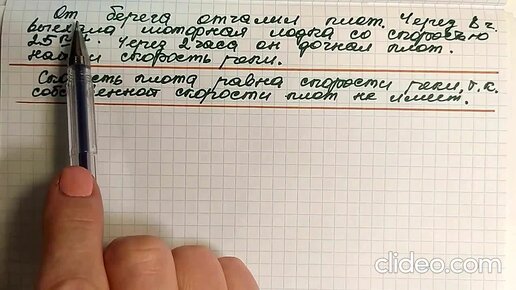 От берега отчалил плот. Через 8 ч.
выехала моторная лодка со скоростью
25 Через 2 часа он догнал плот.
Найти скорость реки.
Скорость плота равна скорости реки, т.к.
собственной скорости плот не имеет.
clideo.com